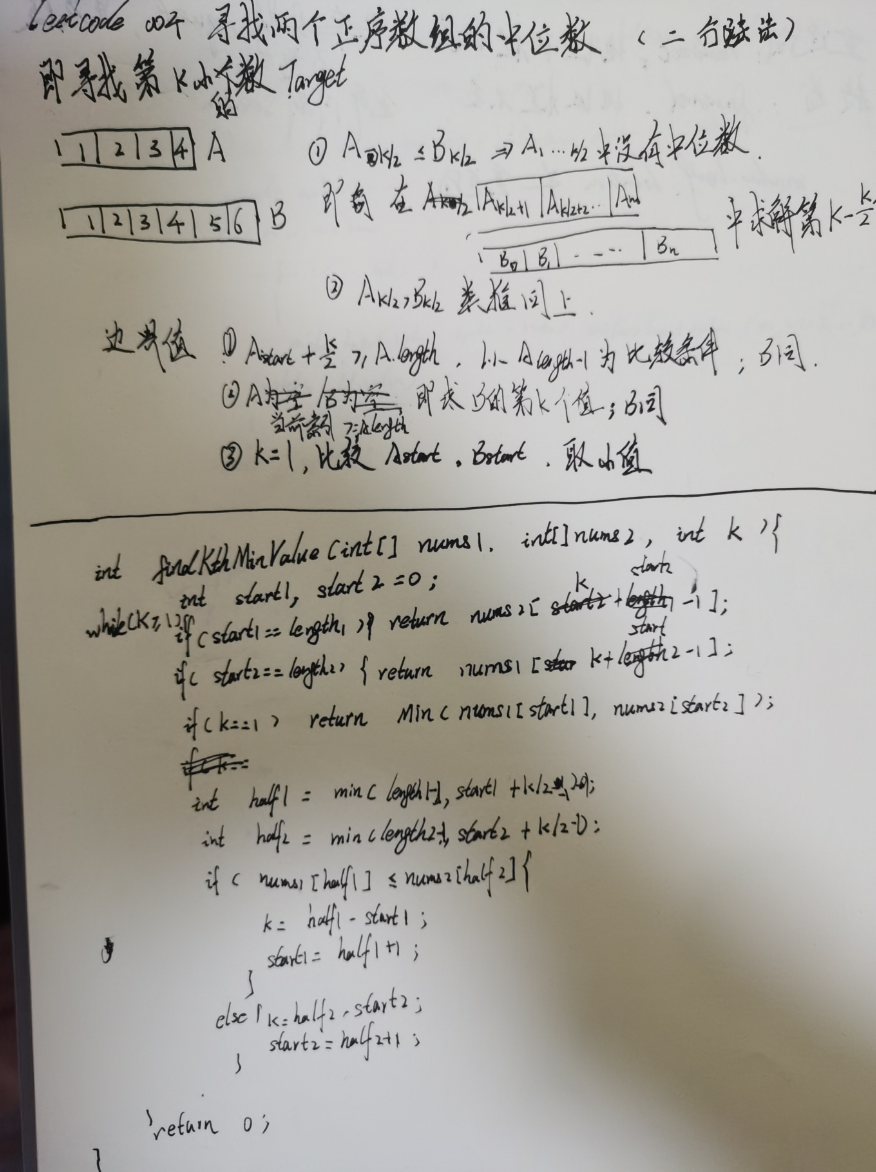 Leetcode 004 寻找两个正序数组的中位数 (二分法)
即寻找第K小的数 Target
1 2 3 4 A
① A k/2 ≤ B k/2 ⇒ A1 … k/2 中没有中位数.
1 2 3 4 5 6 B
即 在 Ak/2+1 Ak/2+2.. An
B0 B1 ---- Bn
中求解第 K-k/2
② Ak/2 > Bk/2 类推同上.
边界值 ① Astart + k/2 ≥ A.length, 以 Alength-1 为比较条件; B同.
② A 当前索引 ≥ Alength 即求B的第K个值; B同
③ k=1, 比较 Astart, Bstart, 取小值
int findKthMinValue (int[] nums1, int[] nums2, int k) {
int start1, start2 = 0;
while(k≥1){
if (start1 == length1) { return nums2[k + start2 -1];
if ( start2 == length2) { return nums1 [k + start -1];
if (k==1) return Min ( nums1[start1], nums2[start2]);
int half1 = min( length1-1, start1 + k/2
int half2 = min(length2-1, start2 + k/2-1);
if ( nums1[half1] ≤ nums2[half2] {
k= half1 - start1;
start1 = half1+1;
}
else { k=half2 - start2;
start2 = half2+1;
}
}
return 0;
}